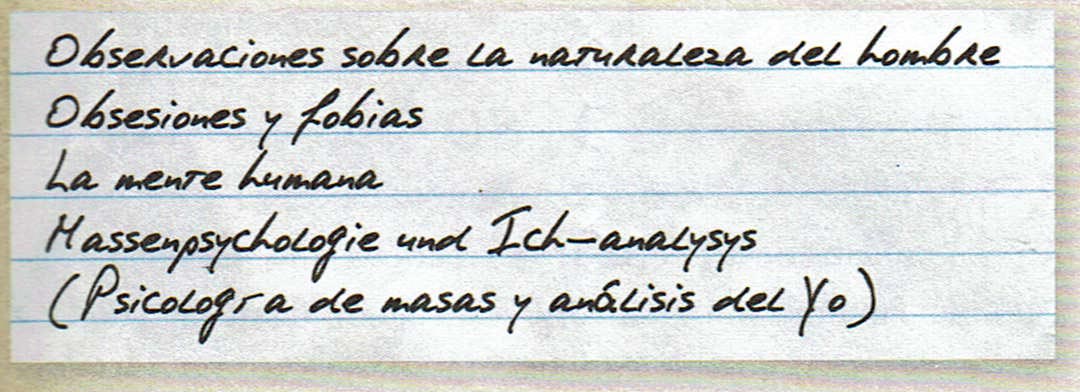 Observaciones sobre la naturaleza del hombre
Obsesiones y fobias
La mente humana
Massenpsychologie und Ich-analysys
(Psicología de masas y análisis del Yo)